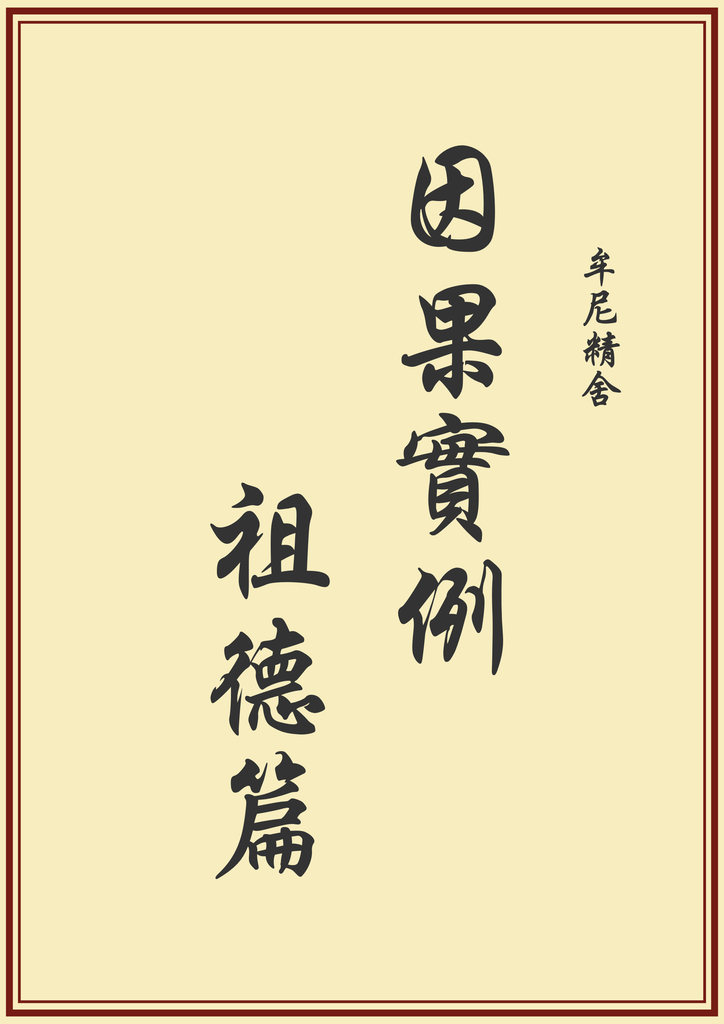 牟尼精舍
因果實例
祖德篇